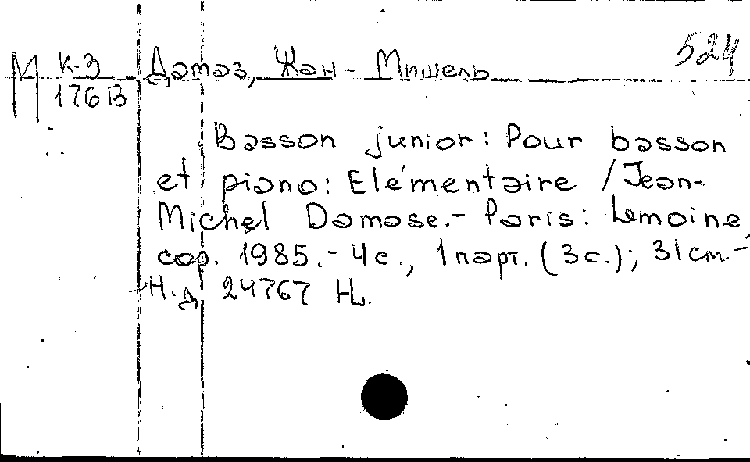 524
М К-3 Дамаз, Жан - Мишель
176 В
Basson junior: Pour basson
et piano: Elémentaire / Jean-
Michel Damase.- Paris: Lemoine,
cop. 1985.- 4 с., 1 парт. (3 с.); 31 см.-
Н.д. 24767 H.L.